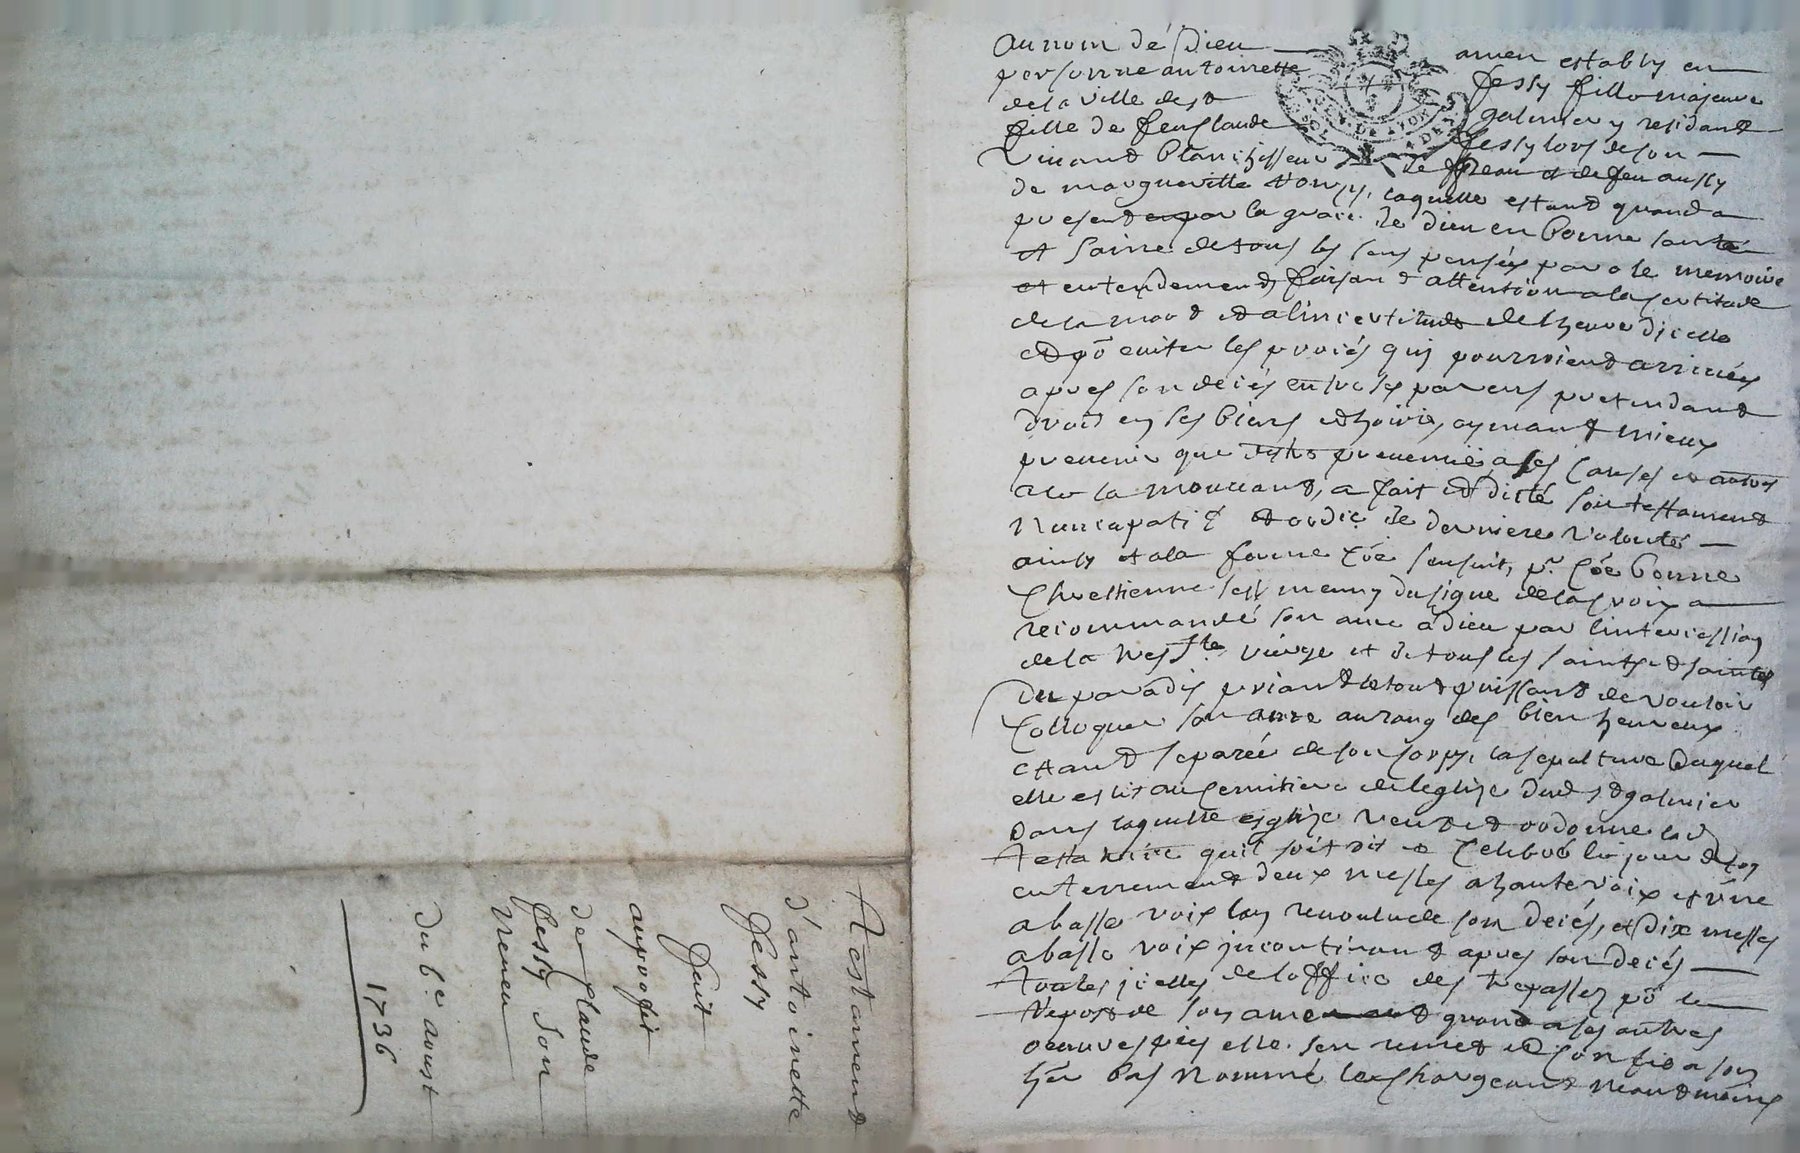 au nom de Dieu amen estably en
personne antoinette fessy fille majeure
de la ville de st galmier y residant
fille de feu glaude fessy lors de son
vivant blanchisseur de et de feu aussy
de margueritte laquelle estant quand a
present par la grace de dieu en bonne santé
et saine de tous les sens pensée parole memoire
et entendement faisant attention a la certitude
de la mort et a lincertitude de lheure dicelle
et po eviter les procés quy pourroient arriver
apres son decés entre ses parens pretendant
droit en ses biens et hoirie, aymant mieux
prevenir que destre prevenue a ses causes
a ce la mouvant, a fait et dicté son testament
nuncupatif et ordre de derniere volonté
ainsy et a la forme coe sensuit, pr coe bonne
Chrestienne sest muny du signe de la croix a
recommandé son ame a dieu par lintercession
de la tres ste vierge et de tous les saints et saintes
du paradis priant le tout puissant de vouloir
colloquer son ame au rang des bien heureux
estant separée de son corps, la sepulture duquel
elle eslit au cemitiere de leglise dud st galmier
dans laquelle eglise veut et ordonne lad
testatrice quil soit dit et celebré le jour de son
enterrement deux messes a haute voix et une
a basse voix son decés, et dix messes
a basse voix incontinant apres son decés
toutes jcelles de loffice des trepassez po le
repos de son ame quand a ses autres
oeuvres pies elle sen remet et confie a son
her bas nommé le chargeant neantmoins
Testament
d'antoinette
fessy
fait
au profit
de Claude
fessy son
neveu
du 6e aoust
1736